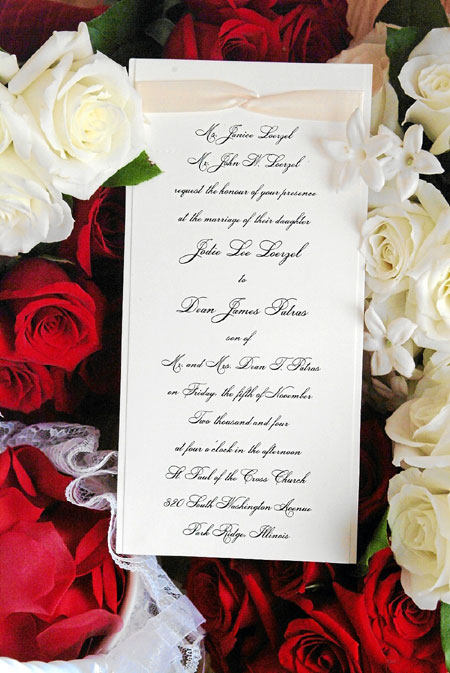 Ms. Janice Loerzel
Mr. John W. Loerzel
request the honour of your presence
at the marriage of their daughter
Jodie Lee Loerzel
to
Dean James Patras
son of
Mr. and Mrs. Dean T. Patras
on Friday, the fifth of November
Two thousand and four
at four o'clock in the afternoon
St. Paul of the Cross Church
320 South Washington Avenue
Park Ridge, Illinois